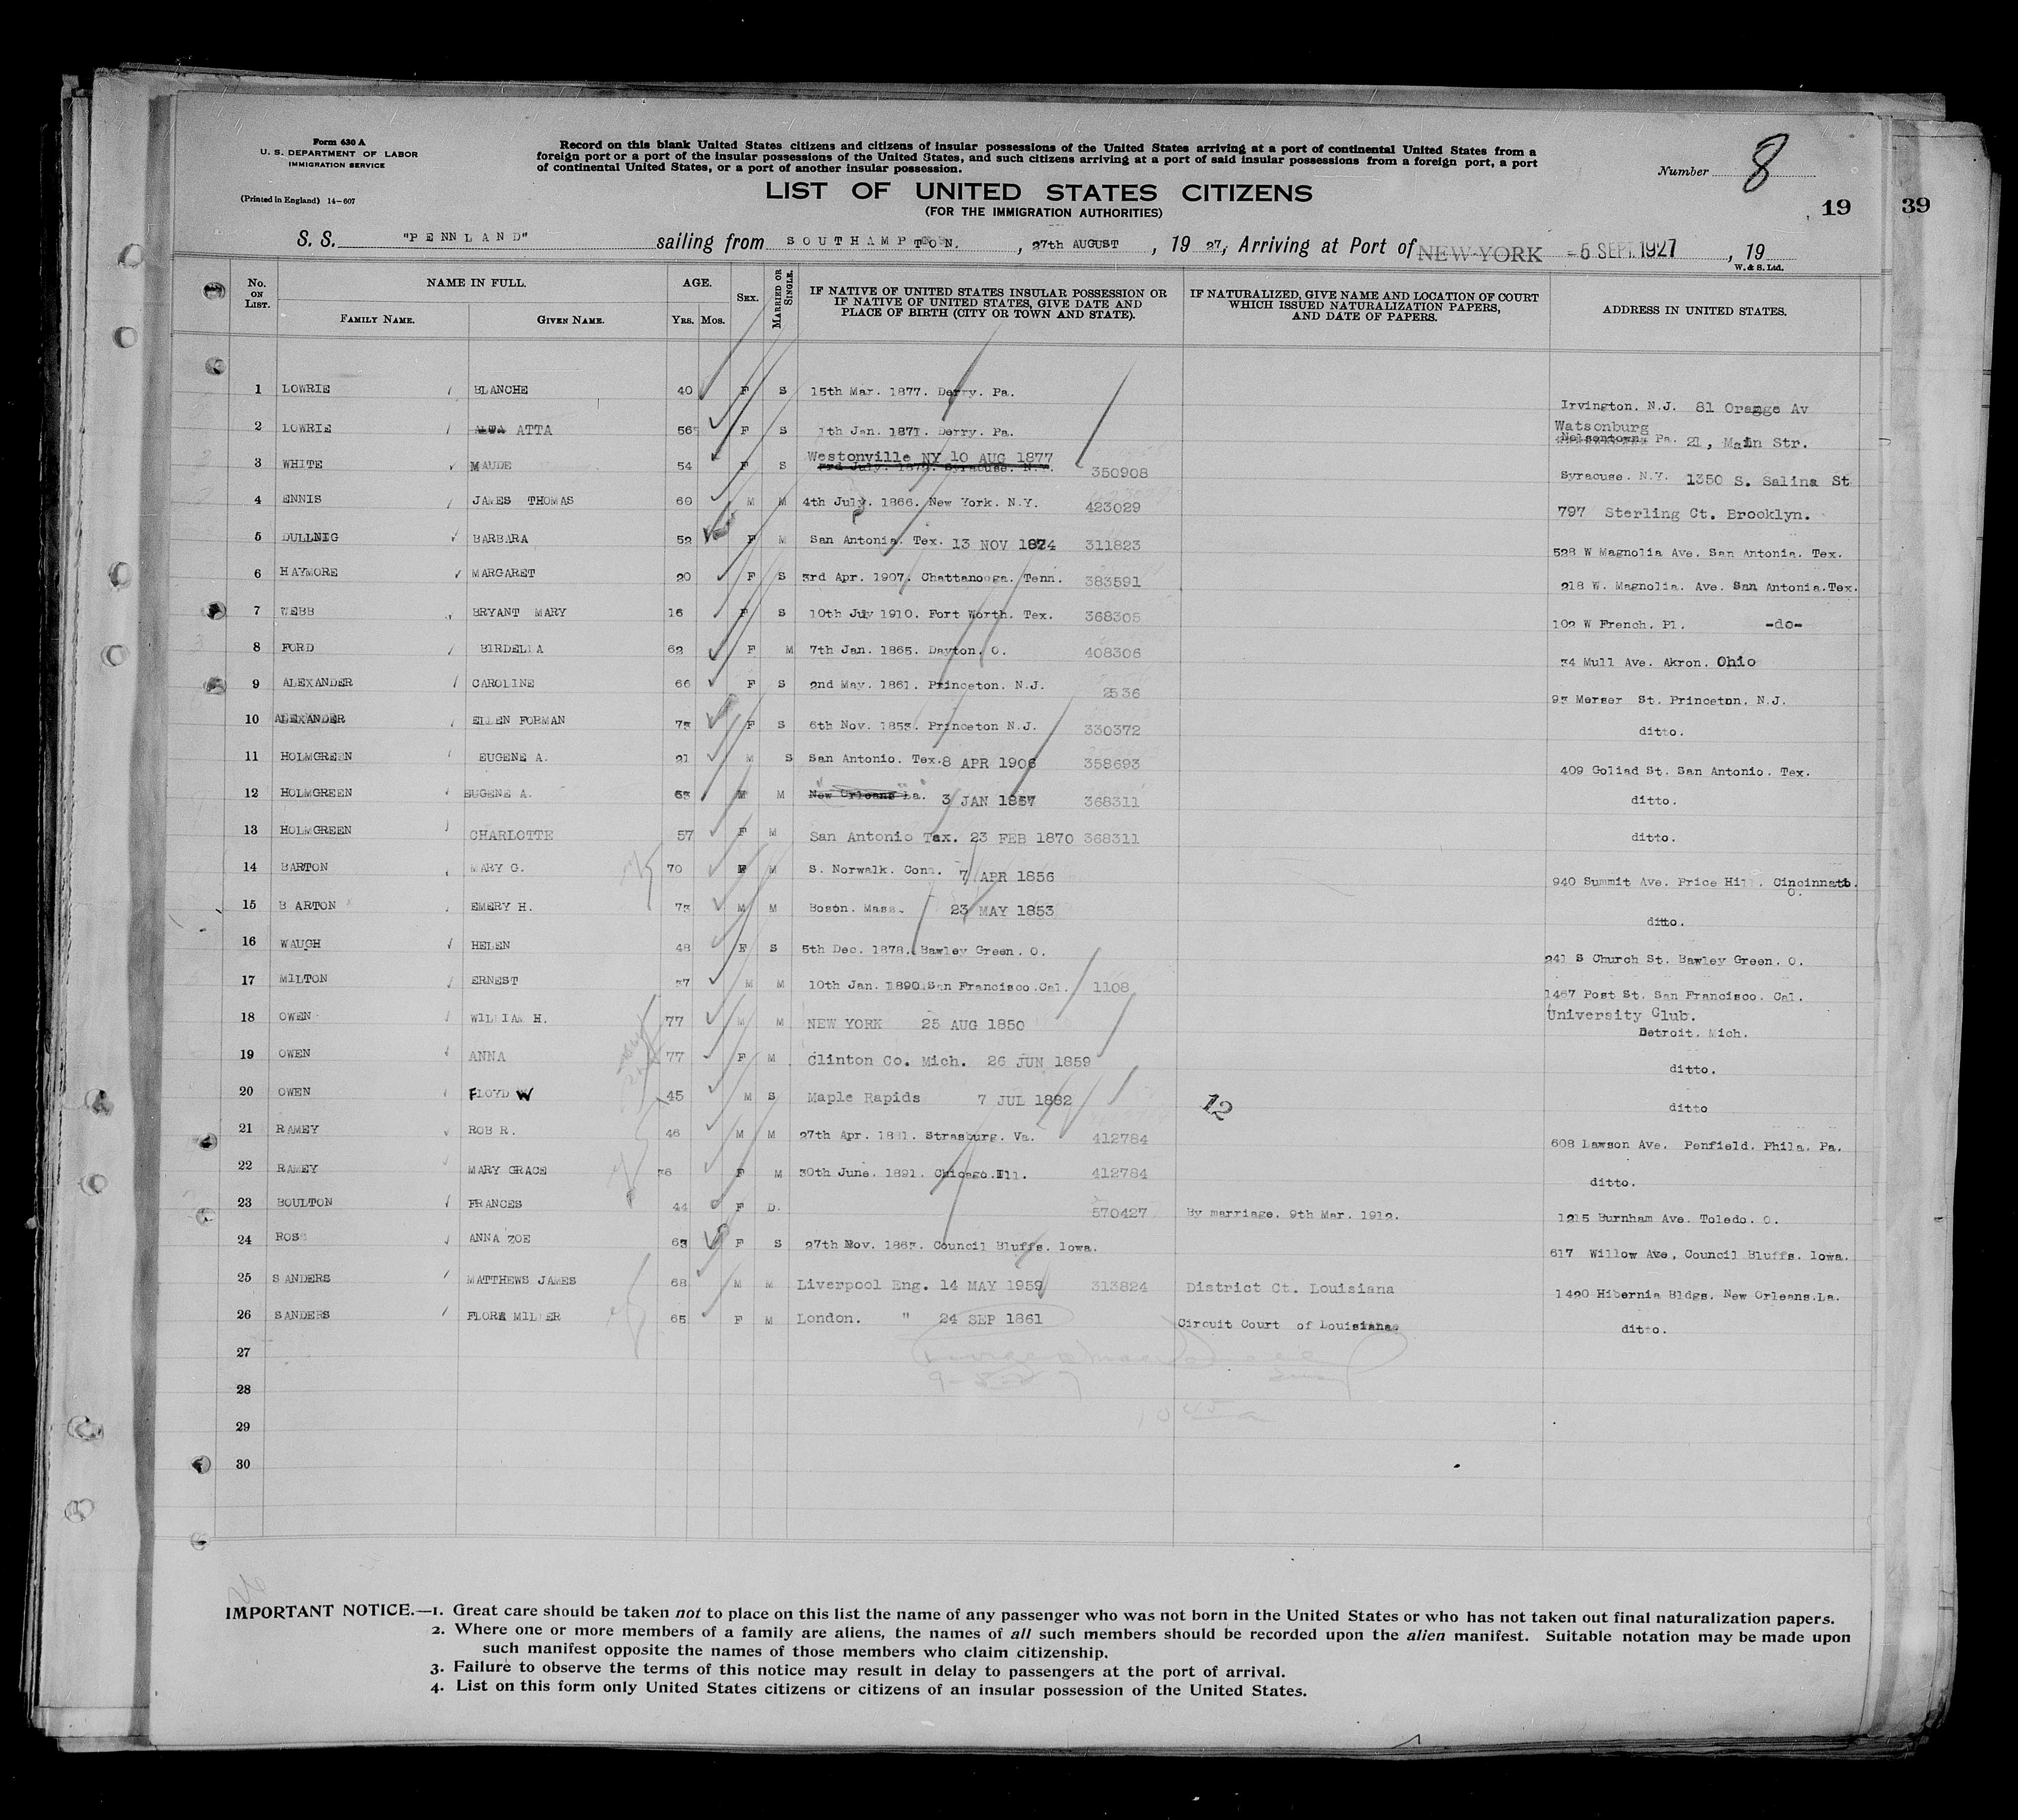 Form 630 A
U. S. DEPARTMENT OF LABOR
IMMIGRATION SERVICE
(Printed in England) 14-607
Record on this blank United States citizens and citizens of insular possessions of the United States arriving at a port of continental United States from a
foreign port or a port of the insular possessions of the United States, and such citizens arriving at a port of said insular possessions from a foreign port, a port
of continental United States, or a port of another insular possession.
LIST OF UNITED STATES CITIZENS
(FOR THE IMMIGRATION AUTHORITIES)
Number 8
19 39
S. S. "PENNLAND" sailing from SOUTHAMPTON. , 27th AUGUST , 19 27, Arriving at Port of NEW-YORK -5 SEPT. 1927 , 19
W. & S. Ltd.
No. ON LIST. NAME IN FULL. AGE. SEX. MARRIED OR SINGLE. IF NATIVE OF UNITED STATES INSULAR POSSESSION OR IF NATIVE OF UNITED STATES, GIVE DATE AND PLACE OF BIRTH (CITY OR TOWN AND STATE). IF NATURALIZED, GIVE NAME AND LOCATION OF COURT WHICH ISSUED NATURALIZATION PAPERS, AND DATE OF PAPERS. ADDRESS IN UNITED STATES.
FAMILY NAME. GIVEN NAME. YRS. MOS.
1 LOWRIE BLANCHE 40 F S 15th Mar. 1877. Derry. Pa. Irvington. N.J. 81 Orange Av
2 LOWRIE ATTA 56 F S 1th Jan. 1871. Derry. Pa. Watsonburg Pa. 21, Main Str.
3 WHITE MAUDE 54 F S Westonville NY 10 AUG 1877 3rd July. 1873. Syracuse. N.Y. 350908 Syracuse. N.Y. 1350 S. Salina St
4 ENNIS JAMES THOMAS 60 M M 4th July. 1866. New York. N.Y. 423029 797 Sterling Ct. Brooklyn.
5 DULLNIG BARBARA 52 F M San Antonia. Tex. 13 NOV 1874 311823 528 W Magnolia Ave. San Antonia. Tex.
6 HAYMORE MARGARET 20 F S 3rd Apr. 1907. Chattanooga. Tenn. 383591 218 W. Magnolia. Ave. San Antonia.Tex.
7 WEBB BRYANT MARY 16 F S 10th July 1910. Fort Worth. Tex. 368305 102 W French. Pl. -do-
8 FORD BIRDELLA 62 F M 7th Jan. 1865. Dayton. O. 408306 34 Mull Ave. Akron. Ohio
9 ALEXANDER CAROLINE 66 F S 2nd May. 1861. Princeton. N.J. 2536 93 Merser St. Princeton. N.J.
10 ALEXANDER ELLEN FORMAN 73 F S 6th Nov. 1853. Princeton N.J. 330372 ditto.
11 HOLMGREEN EUGENE A. 21 M S San Antonio. Tex. 8 APR 1906 358693 409 Goliad St. San Antonio. Tex.
12 HOLMGREEN EUGENE A. M M New Orleans La. 3 JAN 1867 368311 ditto.
13 HOLMGREEN CHARLOTTE 57 F M San Antonio Tex. 23 FEB 1870 368311 ditto.
14 BARTON MARY G. 70 F M S. Norwalk. Conn. 7 APR 1856 940 Summit Ave. Price Hill. Cincinnati. O.
15 B ARTON EMERY H. 73 M M Boson. Mass. 23 MAY 1853 ditto.
16 WAUGH HELEN 48 F S 5th Dec. 1878. Bawley Green. O. 241 S Church St. Bawley Green. O.
17 MILTON ERNEST 37 M M 10th Jan. 1890.San Francisco.Cal. 1108 1467 Post St. San Francisco. Cal.
18 OWEN WILLIAM H. 77 M M NEW YORK 25 AUG 1850 University Club. Detroit. Mich.
19 OWEN ANNA 77 F M Clinton Co. Mich. 26 JUN 1859 ditto.
20 OWEN FLOYD W 45 M S Maple Rapids 7 JUL 1882 12 ditto
21 RAMEY ROB R. 46 M M 27th Apr. 1881. Strasburg. Va. 412784 608 Lawson Ave. Penfield. Phila. Pa.
22 RAMEY MARY GRACE 36 F M 30th June. 1891. Chicago.Ill. 412784 ditto.
23 BOULTON FRANCES 44 F D. 570427 By marriage. 9th Mar. 1912. 1215 Burnham Ave. Toledo. O.
24 ROSS ANNA ZOE 63 F S 27th Nov. 1863. Council Bluffs. Iowa. 617 Willow Ave, Council Bluffs. Iowa.
25 S ANDERS MATTHEWS JAMES 68 M M Liverpool Eng. 14 MAY 1959 313824 District Ct. Louisiana 1420 Hibernia Bldgs. New Orleans.La.
26 SANDERS FLORA MILLER 65 F M London. " 24 SEP 1861 Circuit Court of Louisiana ditto.
27
28
29
30
IMPORTANT NOTICE.—1. Great care should be taken not to place on this list the name of any passenger who was not born in the United States or who has not taken out final naturalization papers.
2. Where one or more members of a family are aliens, the names of all such members should be recorded upon the alien manifest. Suitable notation may be made upon
such manifest opposite the names of those members who claim citizenship.
3. Failure to observe the terms of this notice may result in delay to passengers at the port of arrival.
4. List on this form only United States citizens or citizens of an insular possession of the United States.